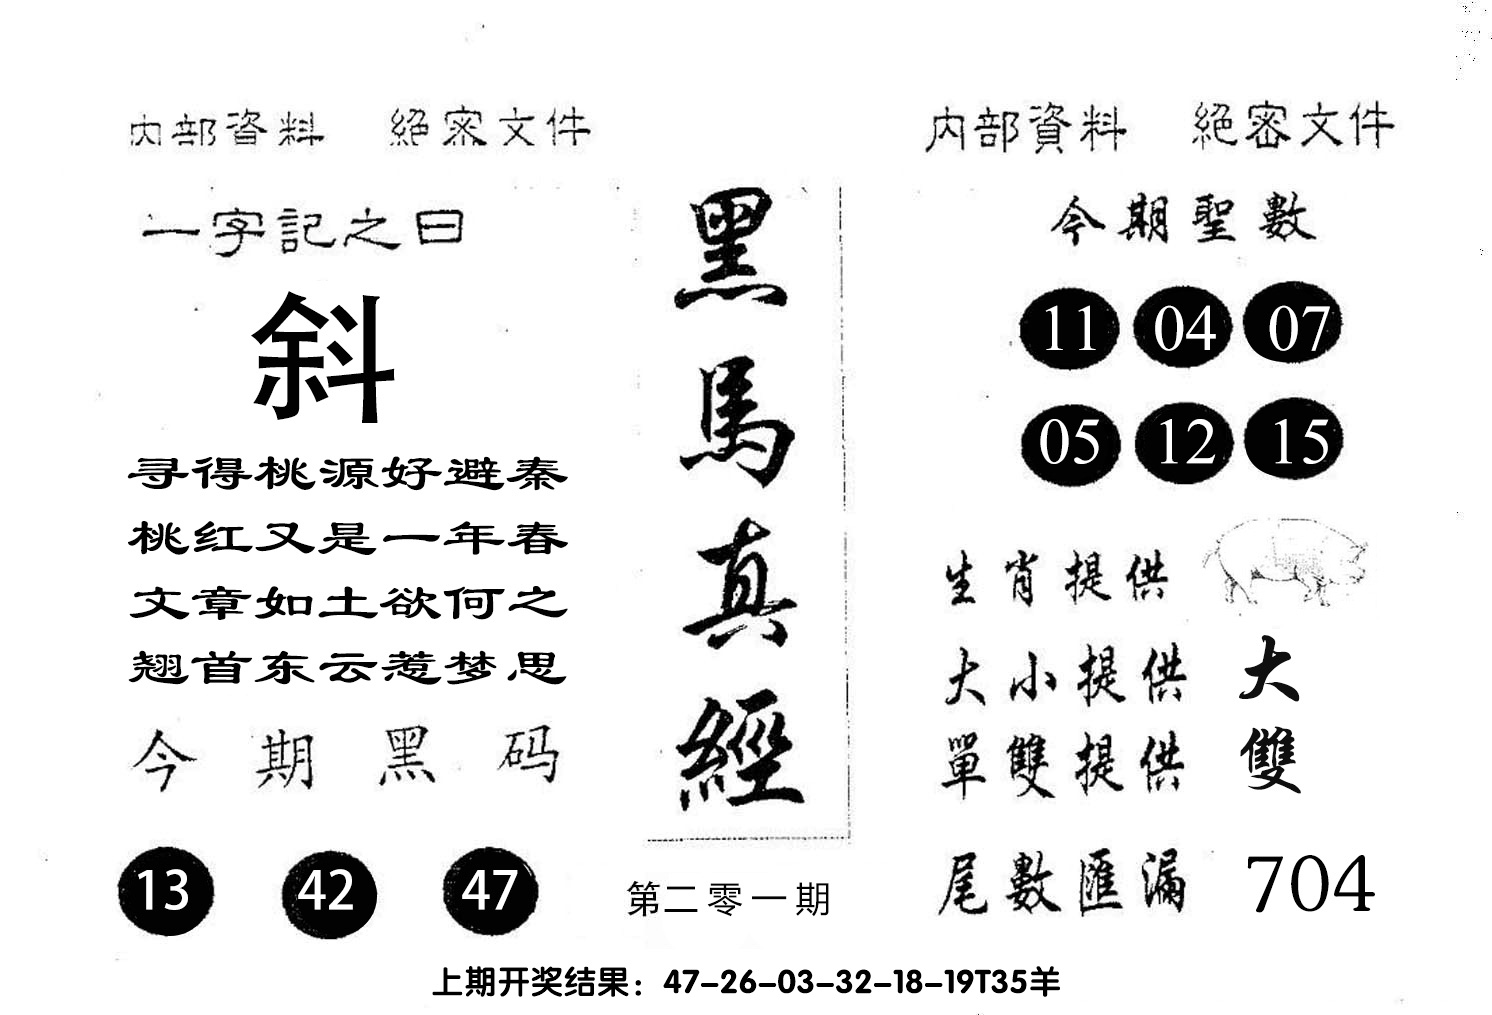 内部資料 絕密文件
一字記之曰
斜
寻得桃源好避秦
桃红又是一年春
文章如土欲何之
翘首东云惹梦思
今期黑码
13 42 47
黑馬真經
第二零一期
内部資料 絕密文件
今期聖數
11 04 07
05 12 15
生肖提供
大小提供 大
單雙提供 雙
尾數匯漏 704
上期开奖结果：47-26-03-32-18-19T35羊